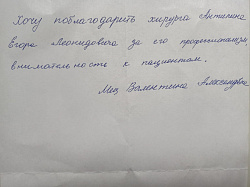 Хочу поблагодарить хирурга Антипина
Егора Леонидовича за его профессионализм
внимательность к пациентам.
Мец Валентина Александровна